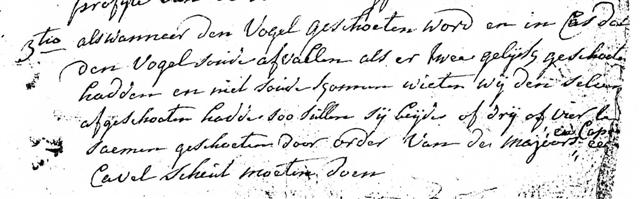 profijt van de
3tio alswanneer den Vogel geschoeten word en in Cas dat
den Vogel soude afvallen als er twee gelijck geschoeten
hadden en niet soude konnen wieten wij den selven
afgeschoten hadde soo sullen sij beijde of drij of vier te
saemen geschoeten door order van de majoors en Capn een
Cavel scheut moeten doen